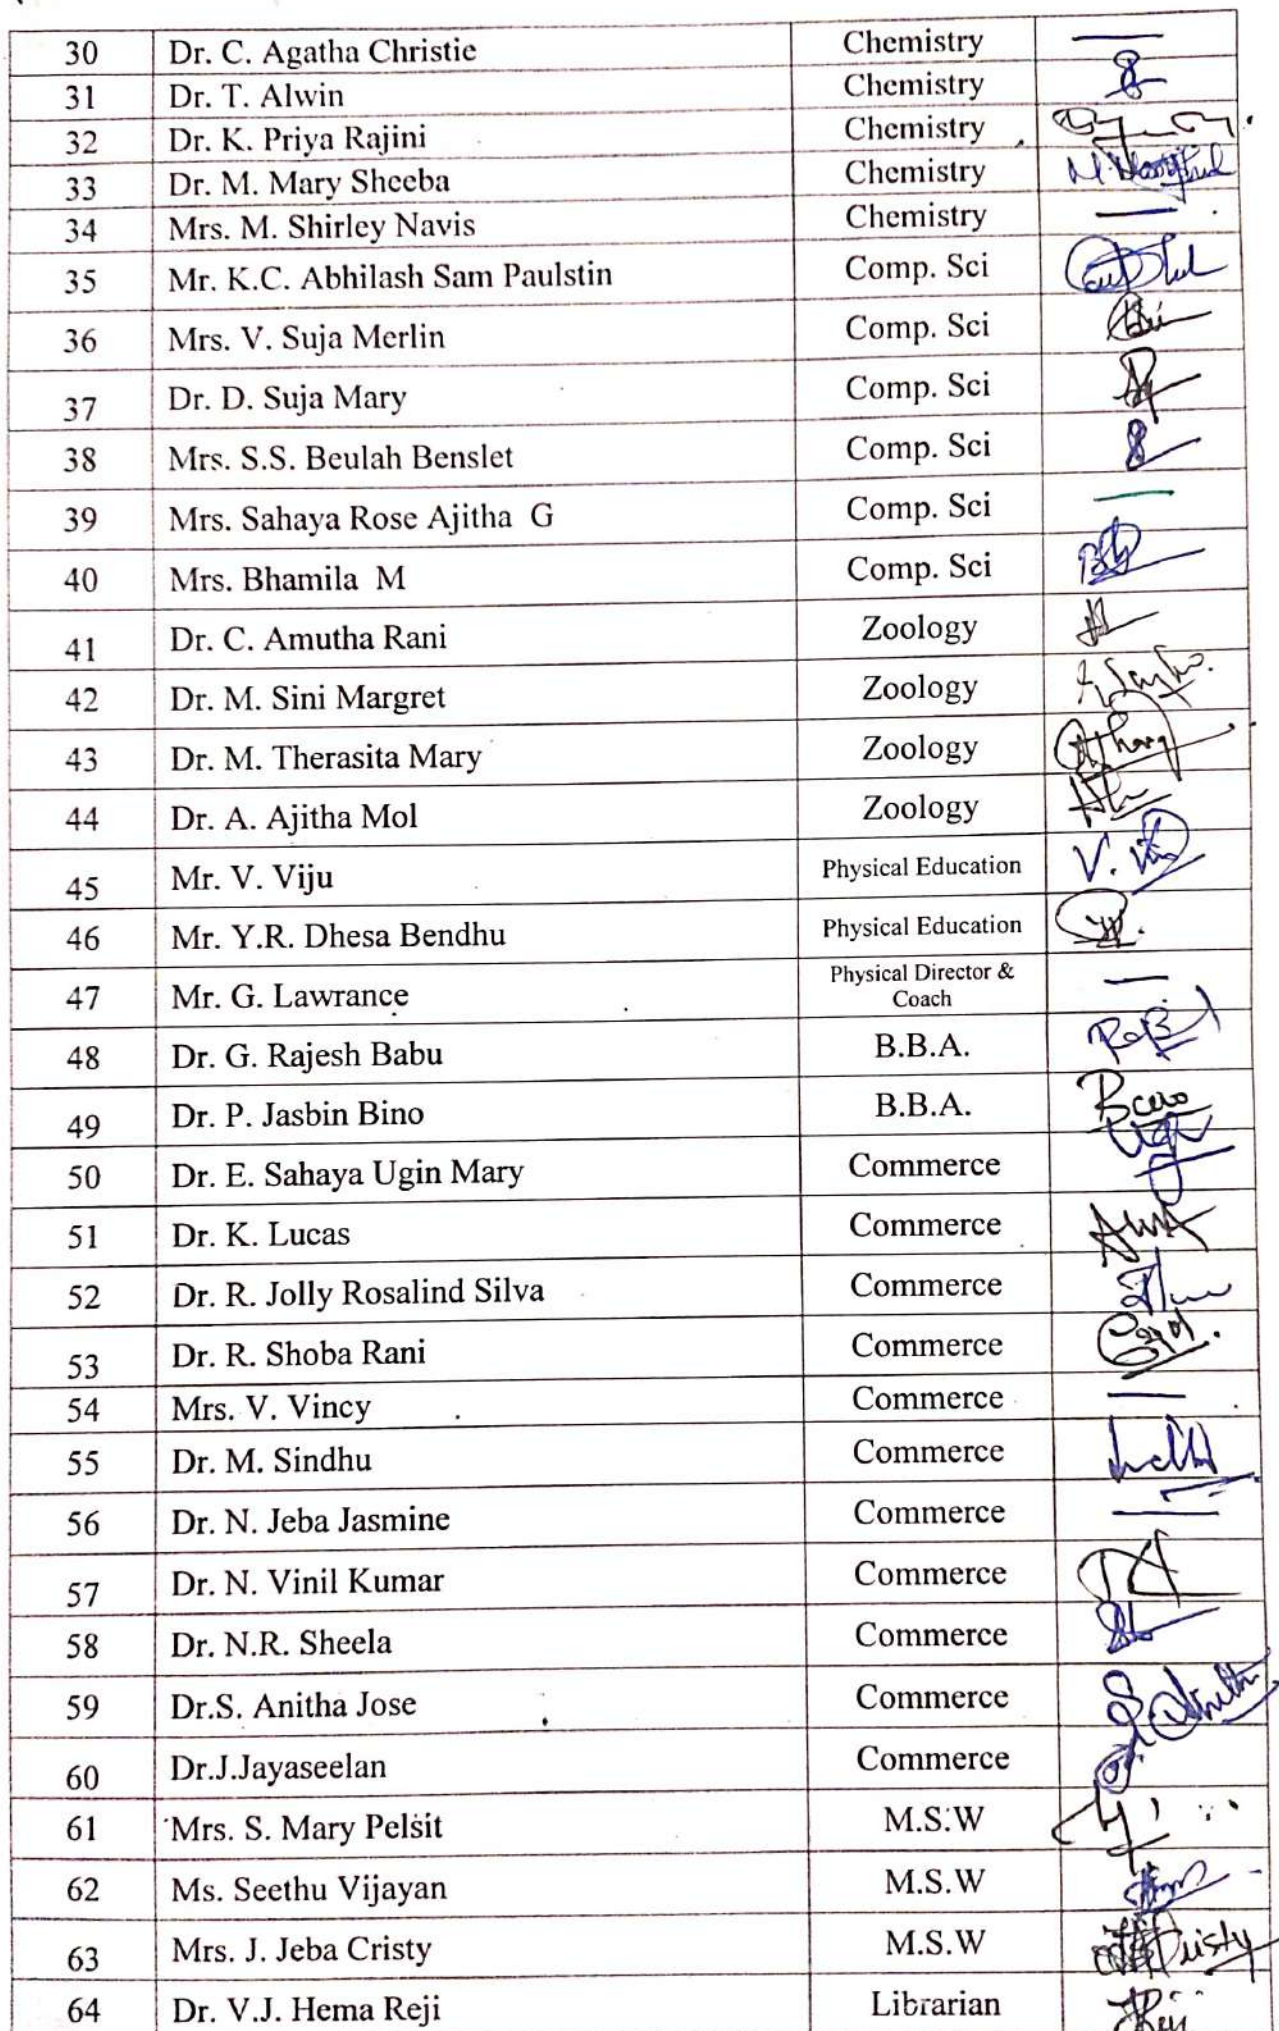 30 Dr. C. Agatha Christie Chemistry —
31 Dr. T. Alwin Chemistry
32 Dr. K. Priya Rajini Chemistry
33 Dr. M. Mary Sheeba Chemistry
34 Mrs. M. Shirley Navis Chemistry —
35 Mr. K.C. Abhilash Sam Paulstin Comp. Sci
36 Mrs. V. Suja Merlin Comp. Sci
37 Dr. D. Suja Mary Comp. Sci
38 Mrs. S.S. Beulah Benslet Comp. Sci
39 Mrs. Sahaya Rose Ajitha G Comp. Sci —
40 Mrs. Bhamila M Comp. Sci
41 Dr. C. Amutha Rani Zoology
42 Dr. M. Sini Margret Zoology
43 Dr. M. Therasita Mary Zoology
44 Dr. A. Ajitha Mol Zoology
45 Mr. V. Viju Physical Education
46 Mr. Y.R. Dhesa Bendhu Physical Education
47 Mr. G. Lawrance Physical Director &
Coach —
48 Dr. G. Rajesh Babu B.B.A.
49 Dr. P. Jasbin Bino B.B.A.
50 Dr. E. Sahaya Ugin Mary Commerce
51 Dr. K. Lucas Commerce
52 Dr. R. Jolly Rosalind Silva Commerce
53 Dr. R. Shoba Rani Commerce
54 Mrs. V. Vincy Commerce —
55 Dr. M. Sindhu Commerce
56 Dr. N. Jeba Jasmine Commerce —
57 Dr. N. Vinil Kumar Commerce
58 Dr. N.R. Sheela Commerce
59 Dr.S. Anitha Jose Commerce
60 Dr.J.Jayaseelan Commerce
61 Mrs. S. Mary Pelsit M.S.W
62 Ms. Seethu Vijayan M.S.W
63 Mrs. J. Jeba Cristy M.S.W
64 Dr. V.J. Hema Reji Librarian